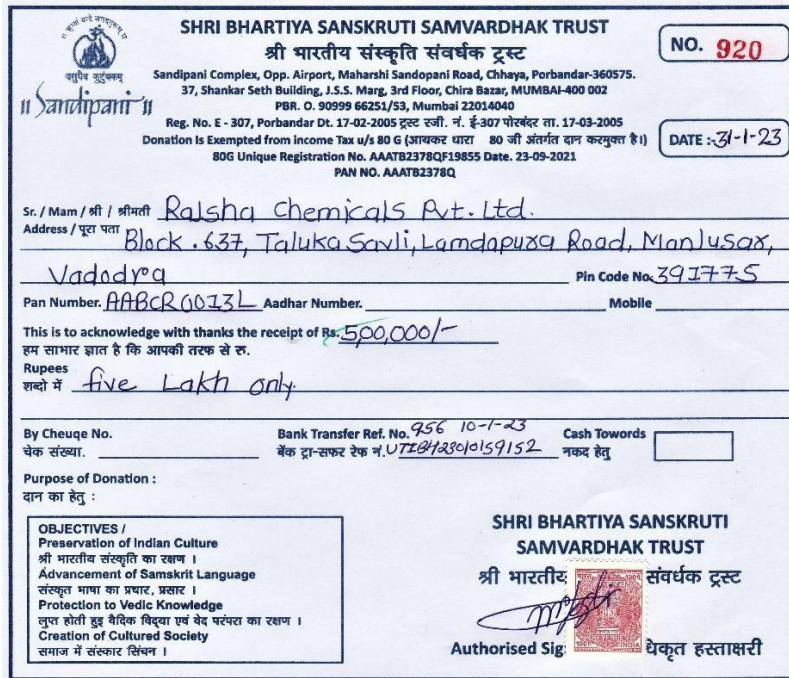 SHRI BHARTIYA SANSKRUTI SAMVARDHAK TRUST
श्री भारतीय संस्कृति संवर्धक ट्रस्ट
NO. 920
वसुधैव कुटुंबकम्
॥ Sandipani ॥
Sandipani Complex, Opp. Airport, Maharshi Sandopani Road, Chhaya, Porbandar-360575.
37, Shankar Seth Building, J.S.S. Marg, 3rd Floor, Chira Bazar, MUMBAI-400 002
PBR. O. 90999 66251/53, Mumbai 22014040
Reg. No. E - 307, Porbandar Dt. 17-02-2005 ट्रस्ट रजी. नं. ई-307 पोरबंदर ता. 17-03-2005
Donation Is Exempted from income Tax u/s 80 G (आयकर धारा 80 जी अंतर्गत दान करमुक्त है।)
DATE :-31-1-23
80G Unique Registration No. AAATB2378QF19855 Date. 23-09-2021
PAN NO. AAATB2378Q
Sr. / Mam / श्री / श्रीमती Ralsha Chemicals Pvt. Ltd.
Address / पूरा पता Block .637, Taluka Savli, Lamdapura Road, Manlusar,
Vadodra Pin Code No. 391775
Pan Number. AABCR0013L Aadhar Number. Mobile
This is to acknowledge with thanks the receipt of Rs. 500,000/-
हम साभार ज्ञात है कि आपकी तरफ से रु.
Rupees
शब्दो में five Lakh only.
By Cheuqe No. Bank Transfer Ref. No. 956 10-1-23 Cash Towords
चेक संख्या. बेंक ट्रा-सफर रेफ नं. UTIBH23010159152 नकद हेतु
Purpose of Donation :
दान का हेतु :
OBJECTIVES /
Preservation of Indian Culture
श्री भारतीय संस्कृति का रक्षण ।
Advancement of Samskrit Language
संस्कृत भाषा का प्रचार, प्रसार ।
Protection to Vedic Knowledge
लुप्त होती हुइ वैदिक विद्या एवं वेद परंपरा का रक्षण ।
Creation of Cultured Society
समाज में संस्कार सिंचन ।
SHRI BHARTIYA SANSKRUTI
SAMVARDHAK TRUST
श्री भारतीय संवर्धक ट्रस्ट
INDIA
Authorised Sig धिकृत हस्ताक्षरी